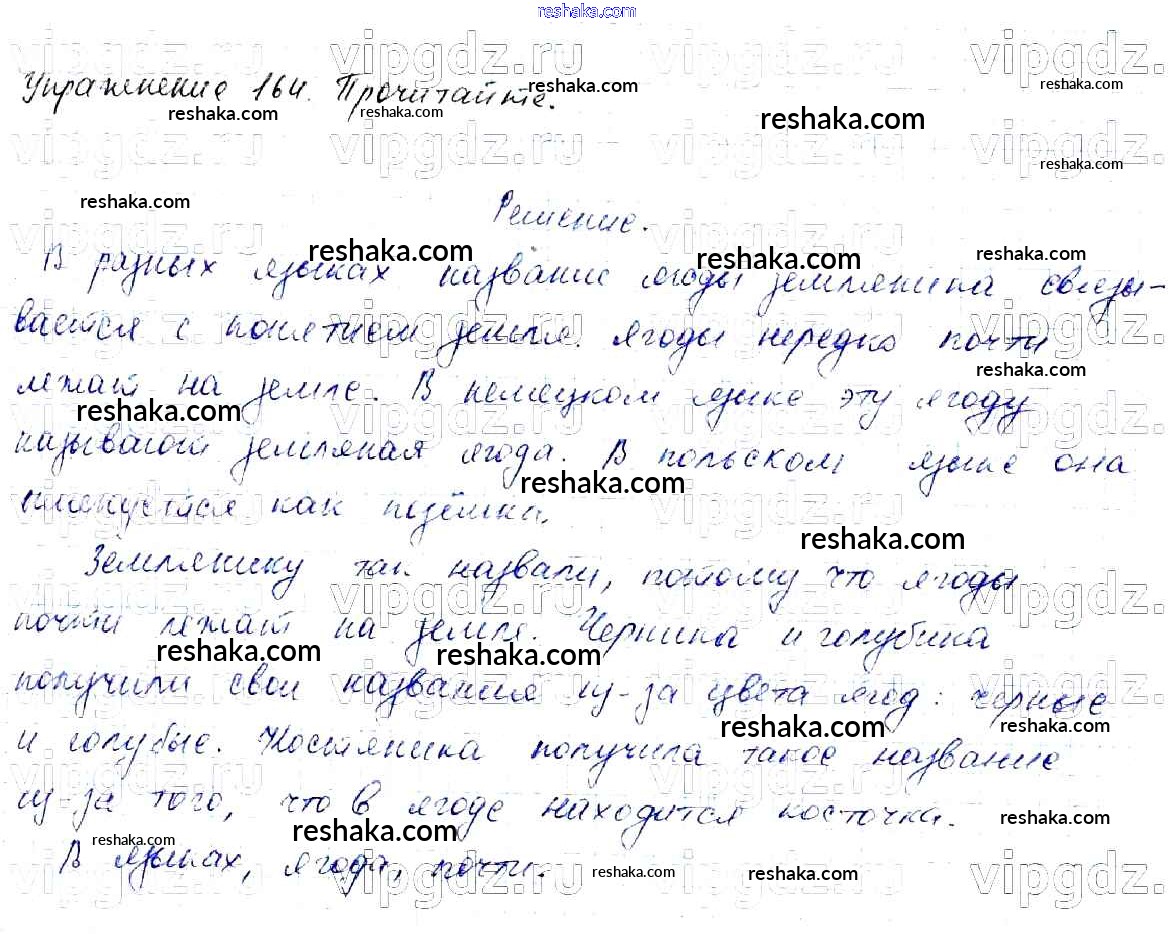 reshaka.com
Упражнение 164. Прочитайте.
Решение.
В разных языках название ягоды земляника связы-
вается с понятием земля. Ягоды нередко почти
лежат на земле. В немецком языке эту ягоду
называют земляная ягода. В польском языке она
как позёмка.
Землянику так назвали, потому что ягоды
почти лежат на земле. Черника и голубика
получили свои названия из-за цвета ягод: черные
и голубые. Костяника получила такое название
из-за того, что в ягоде находится косточка.
В языках, ягода, почти.